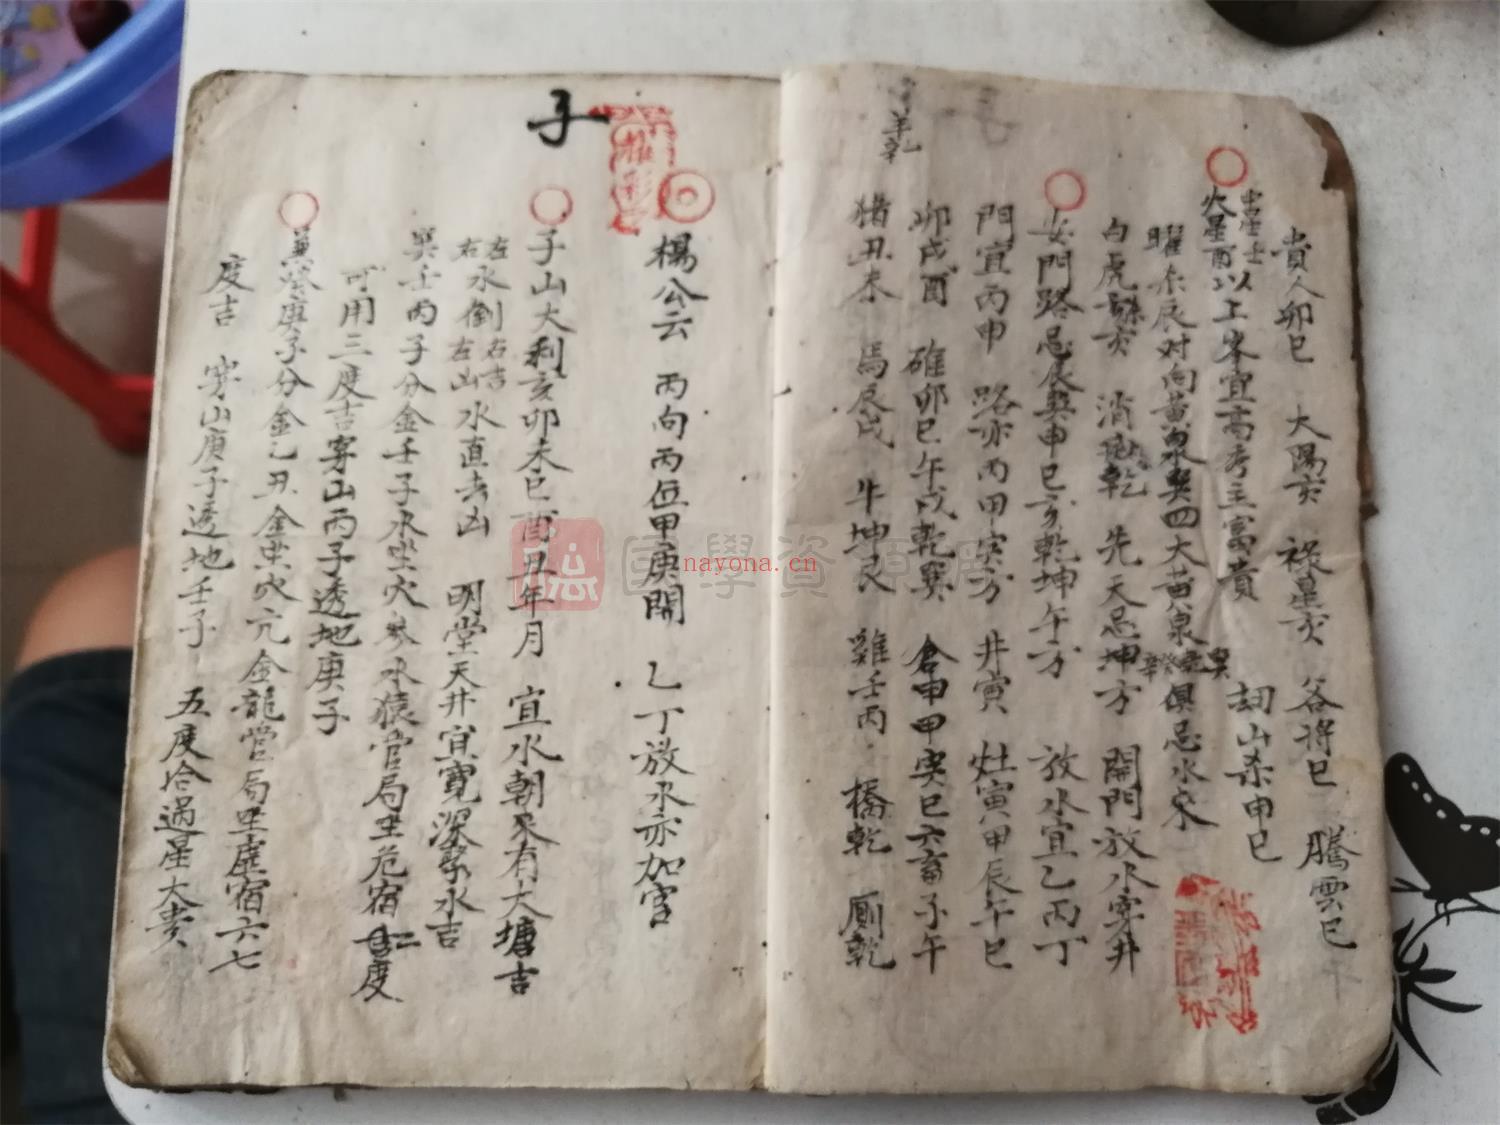 貴人卯巳　太陽亥　祿星亥　谷將巳　騰雲巳
火星酉以上峯宜高秀主富貴　刼山杀申巳
曜杀辰对向黄泉巽四大黄泉　俱忌水来
白虎 亥　消 乾　先天忌坤方　開門放水穿井
女門路忌辰巽申巳亥乾坤午方　放水宜乙丙丁
門宜丙申　路亦丙甲寅方　井寅　灶寅甲辰午巳
卯戌酉　碓卯巳午戌乾巽　倉申甲寅巳六畜子午
猪丑未　馬辰戌　牛坤艮　雞壬丙　橋乾　厠乾
羊乾
楊公云　丙向丙位甲庚開　乙丁放水亦加官
子
子山大利亥卯未巳酉丑年月　宜水朝来有大塘吉
左右水倒右左吉山水直去凶　明堂天井宜寬深聚水吉
巽壬丙子分金壬子水坐穴参水猿管局坐危宿 度
可用三度吉穿山丙子透地庚子
兼癸庚子分金乙丑金坐穴亢金龍管局坐虚宿六七
度吉　穿山庚子透地壬子　五度恰過星太
國學資源庫
nayona.cn